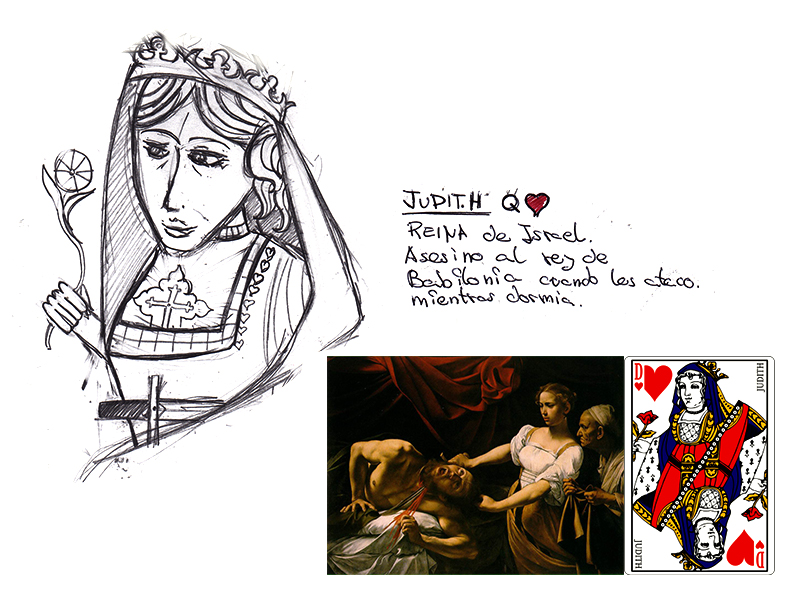 JUDITH Q
REINA de Israel.
Asesino al rey de
Babilonia cuando les ataco.
mientras dormia.
D
JUDITH
JUDITH
D